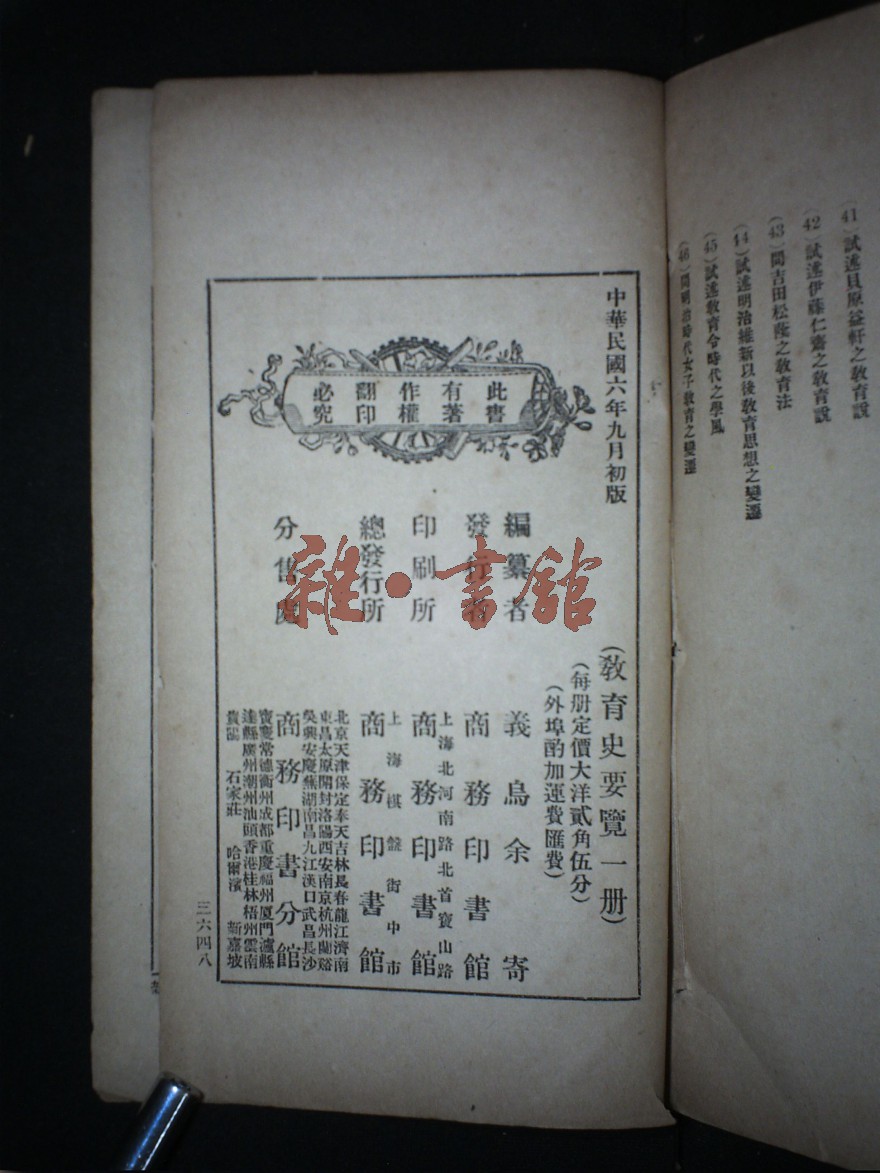 (41)試述貝原益軒之教育說
(42)試述伊藤仁齋之教育說
(43)問吉田松蔭之教育法
(44)試述明治維新以後教育思想之變遷
(45)試述教育令時代之學風
(46)問明治時代女子教育之變遷
中華民國六年九月初版
此書
有著
作權
翻印
必究
(教育史要覽一册)
(每册定價大洋貳角伍分)
(外埠酌加運費匯費)
編纂者 義烏余寄
發行者 商務印書館
上海北河南路北首寶山路
印刷所 商務印書館
上海棋盤街中市
總發行所 商務印書館
北京天津保定奉天吉林長春龍江濟南
東昌太原開封洛陽西安南京杭州蘭谿
吳興安慶蕪湖南昌九江漢口武昌長沙
分售處 商務印書分館
寶慶常德衡州成都重慶福州厦門瀘縣
達縣廣州潮州汕頭香港桂林梧州雲南
貴陽 石家莊 哈爾濱 新嘉坡
三六四八
雜·書館